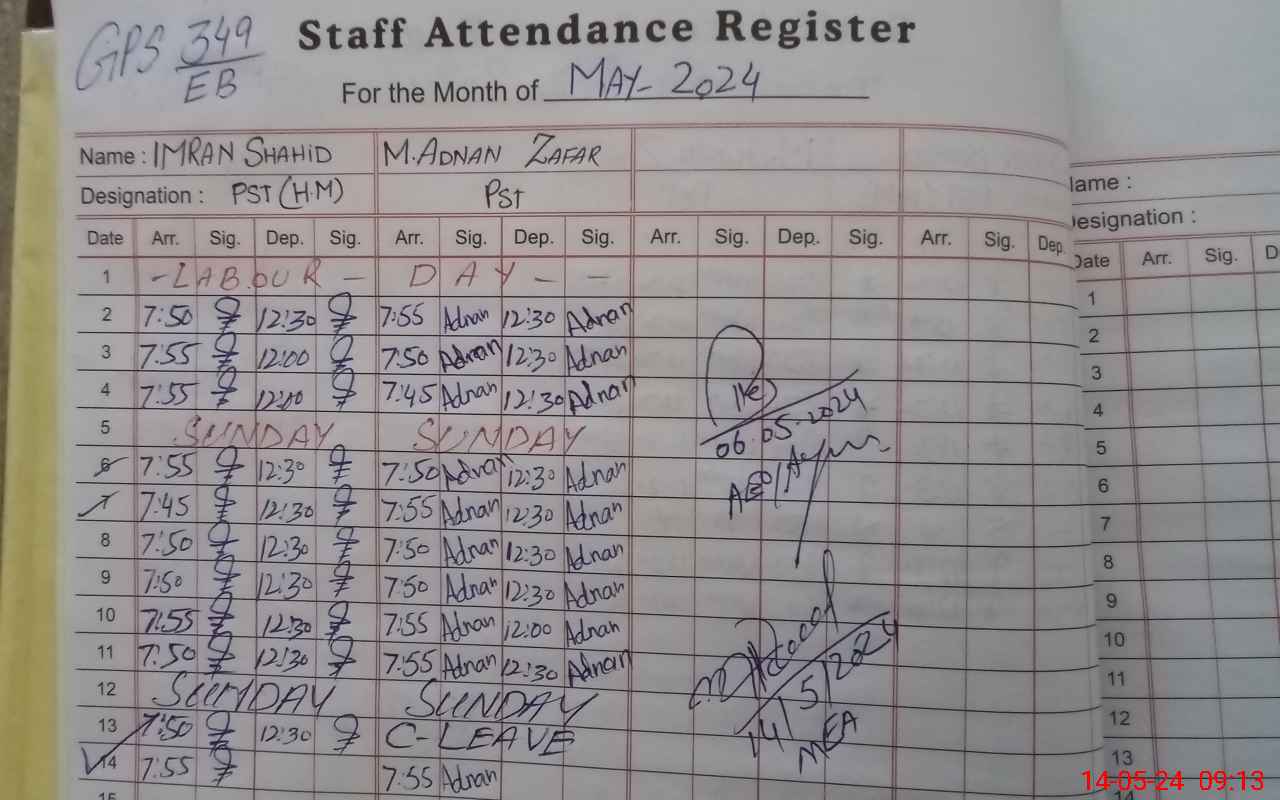 GPS 349
EB
Staff Attendance Register
For the Month of MAY-2024
Name : IMRAN SHAHID M. ADNAN ZAFAR
Designation : PST (H.M) PST
Date Arr. Sig. Dep. Sig. Arr. Sig. Dep. Sig. Arr. Sig. Dep. Sig. Arr. Sig. Dep.
1 - LABOUR - DAY - -
2 7:50 12:30 7:55 Adnan 12:30 Adnan
3 7:55 12:00 7:50 Adnan 12:30 Adnan
4 7:55 12:00 7:45 Adnan 12:30 Adnan
5 SUNDAY SUNDAY
6 7:55 12:30 7:50 Adnan 12:30 Adnan
7 7:45 12:30 7:55 Adnan 12:30 Adnan
8 7:50 12:30 7:50 Adnan 12:30 Adnan
9 7:50 12:30 7:50 Adnan 12:30 Adnan
10 7:55 12:30 7:55 Adnan 12:00 Adnan
11 7:50 12:30 7:55 Adnan 12:30 Adnan
12 SUNDAY SUNDAY
13 7:50 12:30 C-LEAVE
14 7:55 7:55 Adnan
15
06.05.2024
14/5/2024
MEA
lame :
esignation :
Date Arr. Sig. D
1
2
3
4
5
6
7
8
9
10
11
12
13
14
14-05-24 09:13